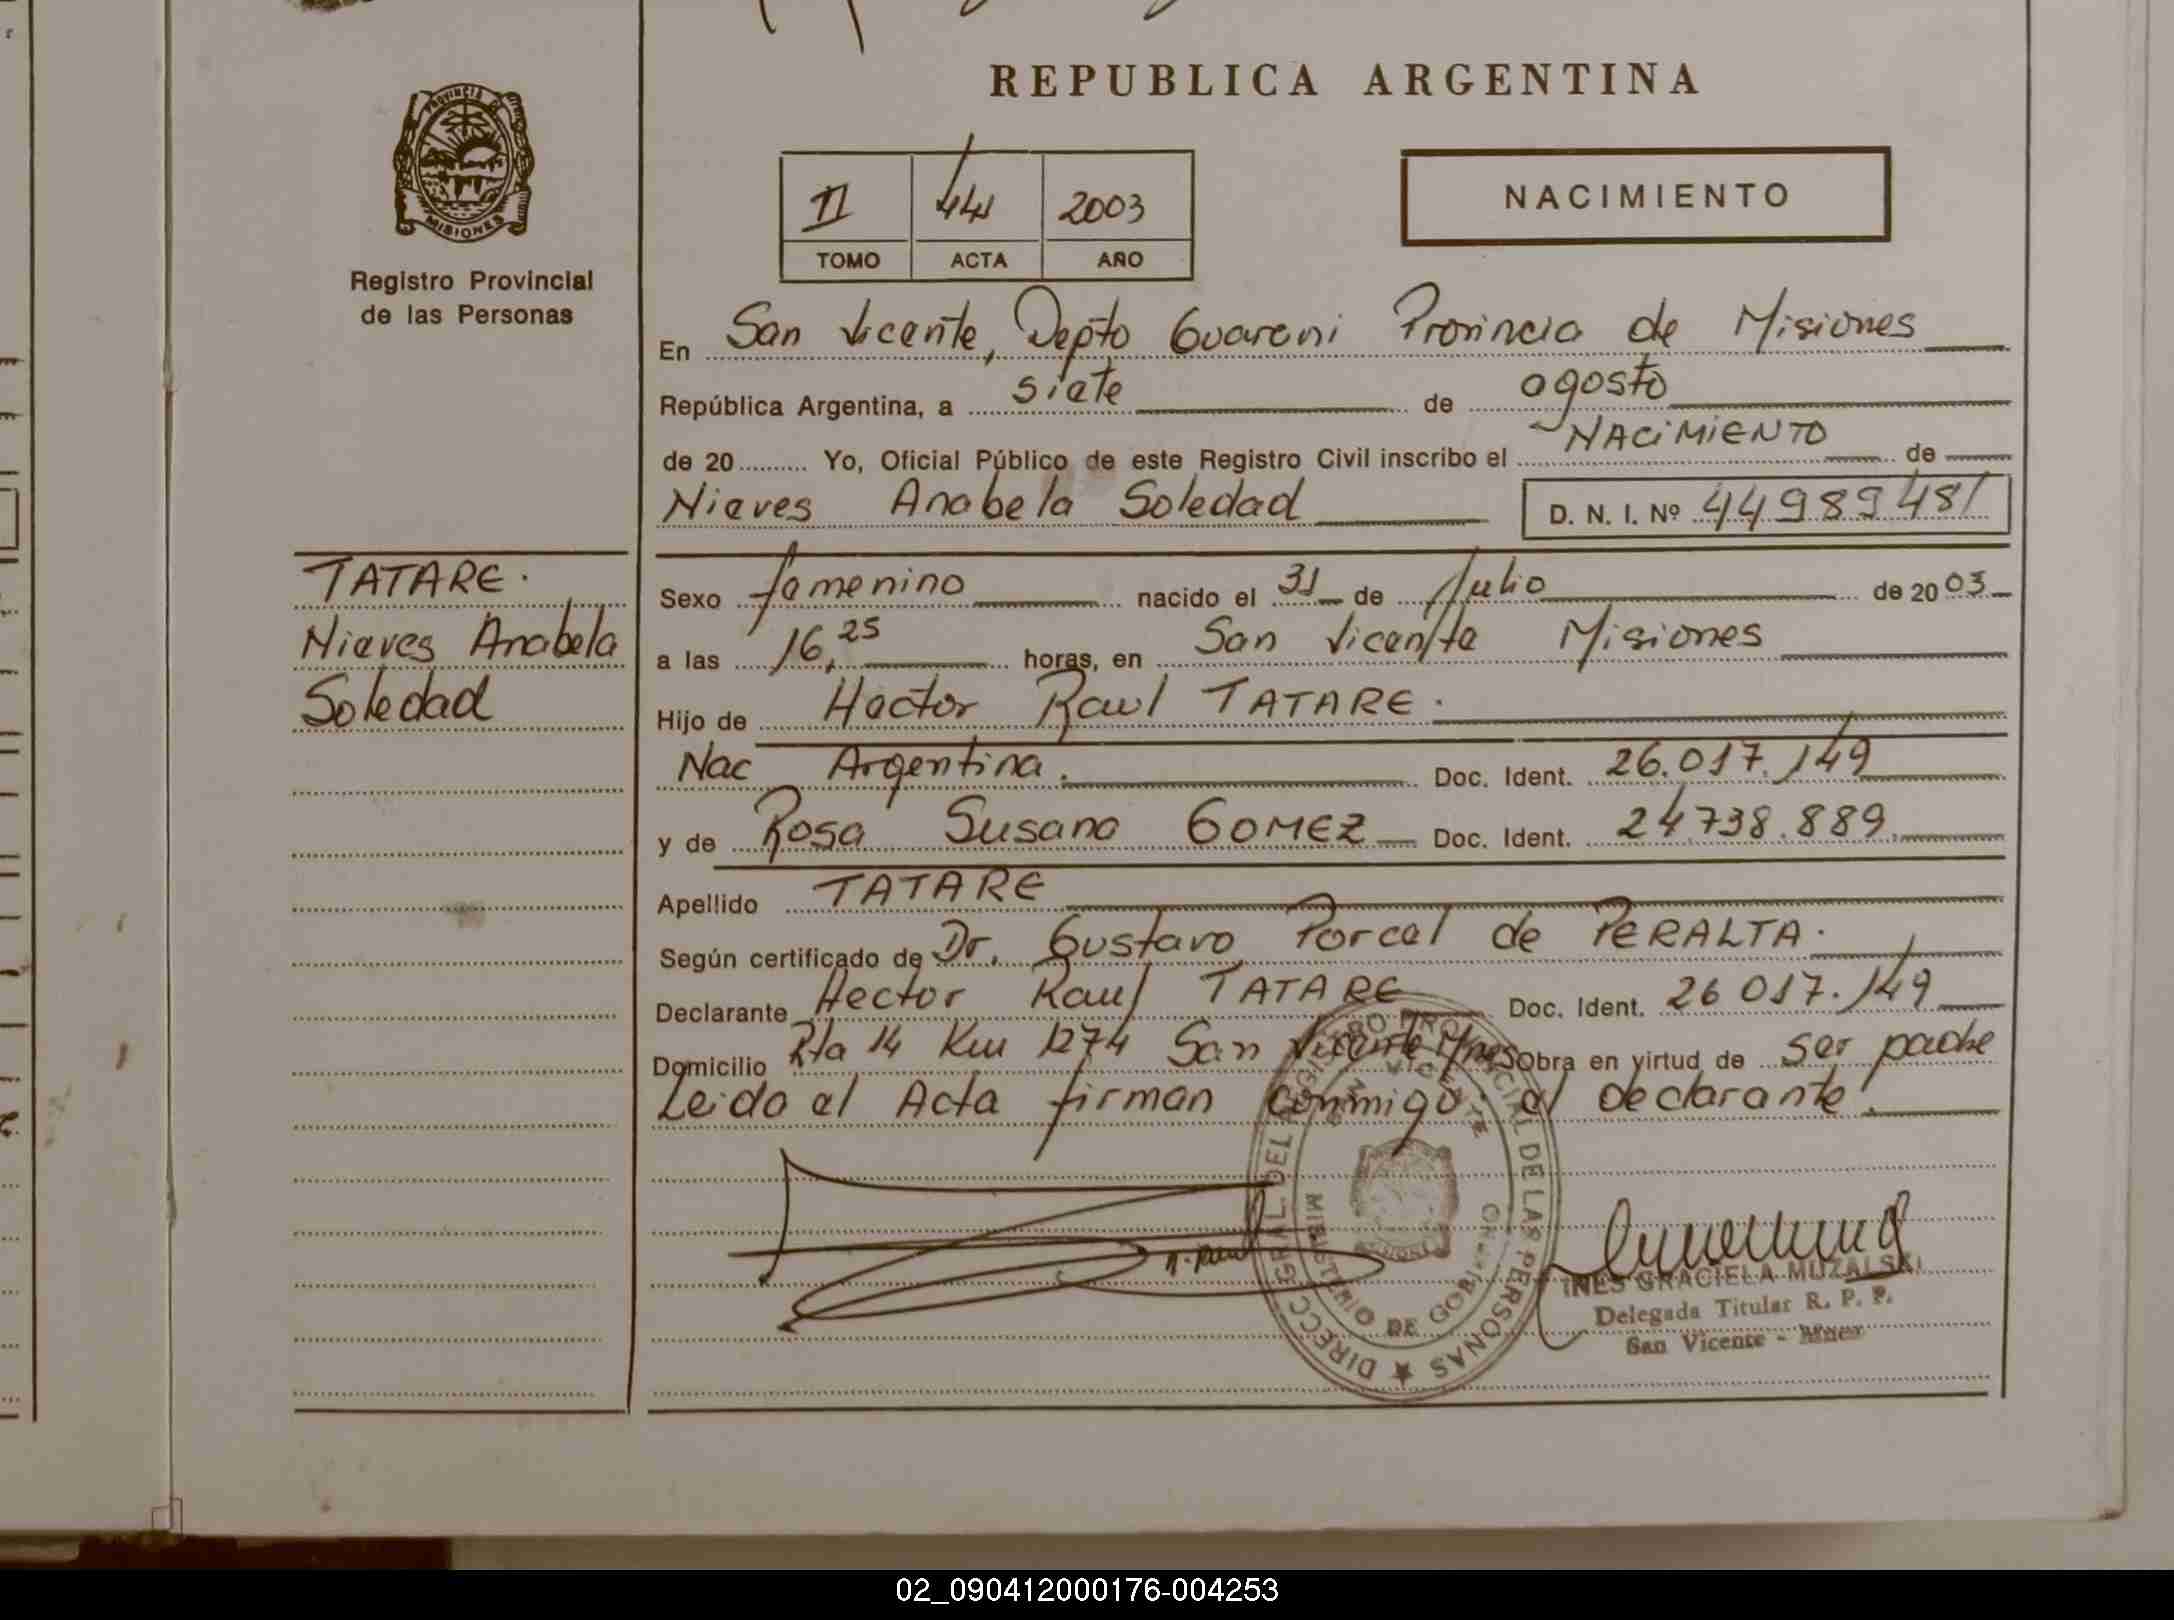 REPUBLICA ARGENTINA
PROVINCIA DE MISIONES
Registro Provincial
de las Personas
II 2003
TOMO ACTA AÑO
NACIMIENTO
En San Vicente, Depto Guarani Provincia de Misiones
República Argentina, a siete de agosto
de 20 Yo, Oficial Público de este Registro Civil inscribo el NACIMIENTO de
Nieves Anabela Soledad D. N. I. Nº 44989481
TATARE.
Nieves Anabela
Soledad
Sexo femenino nacido el 31 de Julio de 2003
a las 16,25 horas, en San Vicente Misiones
Hijo de Hector Raul TATARE.
Nac Argentina. Doc. Ident. 26.017.149
y de Rosa Susana GOMEZ Doc. Ident. 24738.889
Apellido TATARE
Según certificado de Dr. Gustavo Porcel de PERALTA.
Declarante Hector Raul TATARE Doc. Ident. 26 017.149
Domicilio Rta 14 Km 1274 San Vicente Mnes Obra en virtud de ser padre
Leida el Acta firman conmigo el declarante.
DIRECC. GRAL. DEL REGISTRO PROVINCIAL DE LAS PERSONAS
MINISTERIO DE GOBIERNO
INES GRACIELA MUZALSKI
Delegada Titular R. P. P.
San Vicente - Mnes
02_090412000176-004253